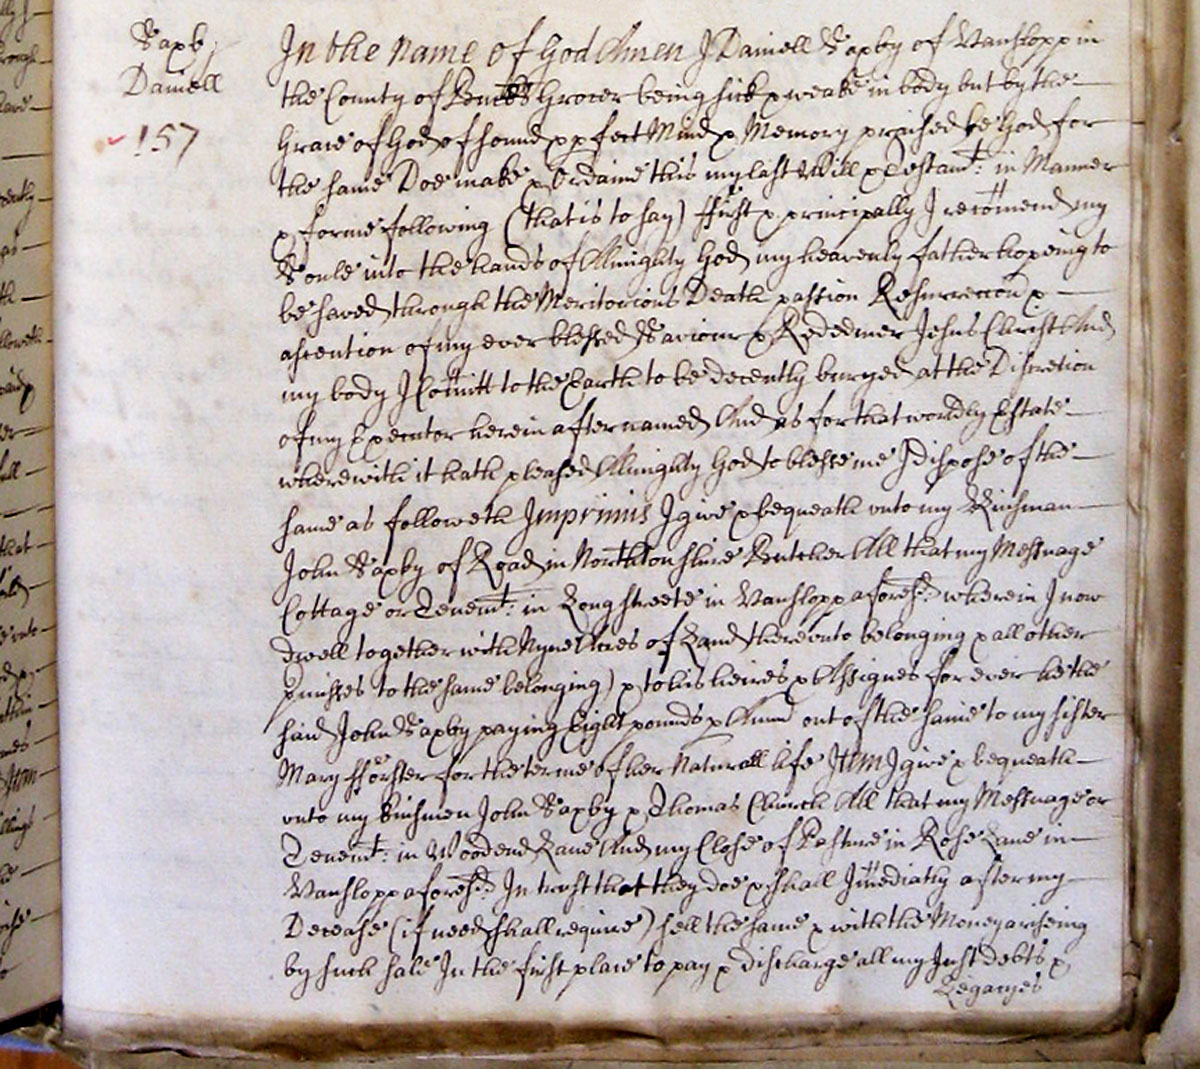 Saxby
Daniell
157
In the Name of God Amen I Daniell Saxby of Vanslopp in
the County of Bucks Grocer being sick & weake in body but by the
Grace of God of sound & pfect Mind & Memory praised be God for
the same Doe make & Ordaine this my last Will & Testamt: in Manner
& forme following (that is to say) ffirst & principally I recomend my
Soule into the hands of Almighty God my heavenly father hopeing to
be saved through the Meritorious Death passion Resurreccon &
ascention of my ever blessed Saviour & Redeemer Jesus Christ And
my body I Comitt to the Earth to be decently buryed at the Discretion
of my Executor herein after named And as for that worldly Estate
wherewith it hath pleased Almighty God to blesse me I dispose of the
same as followeth Imprimis I give & bequeath unto my Kinsman
John Saxby of Road in Northtonshire Butcher All that my Messuage
Cottage or Tenemt: in Longstreete in Vanslopp aforesd: wherein I now
dwell together with Nyne Acres of Land thereunto belonging & all other
pmisses to the same belonging) & to his heires & Assignes for ever he the
said John Saxby paying Eight pounds p Annu out of the same to my sister
Mary fforster for the terme of her Naturall life Item I give & bequeath
unto my kinsmen John Saxby & Thomas Church All that my Messuage or
Tenemt: in Woodend Lane And my Close of Pasture in Rose Lane in
Vanslopp aforesd: In trust that they doe & shall Imediatly after my
Decease (if need shall require) sell the same & with the Money ariseing
by such sale In the first place to pay & discharge all my Just debts &
Legacyes